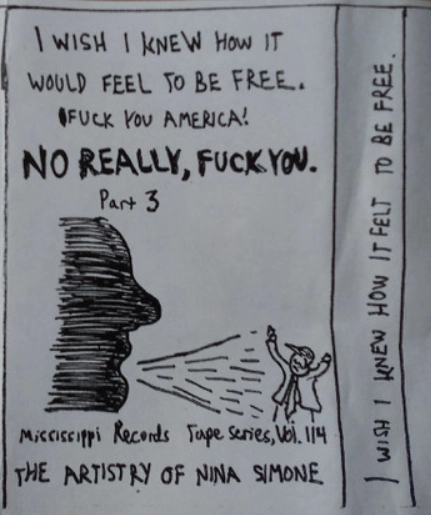 I WISH I KNEW HOW IT
WOULD FEEL TO BE FREE.
FUCK YOU AMERICA!
NO REALLY, FUCK YOU.
Part 3
Mississippi Records Tape Series, Vol. 114
THE ARTISTRY OF NINA SIMONE
I WISH I KNEW HOW IT FELT TO BE FREE.